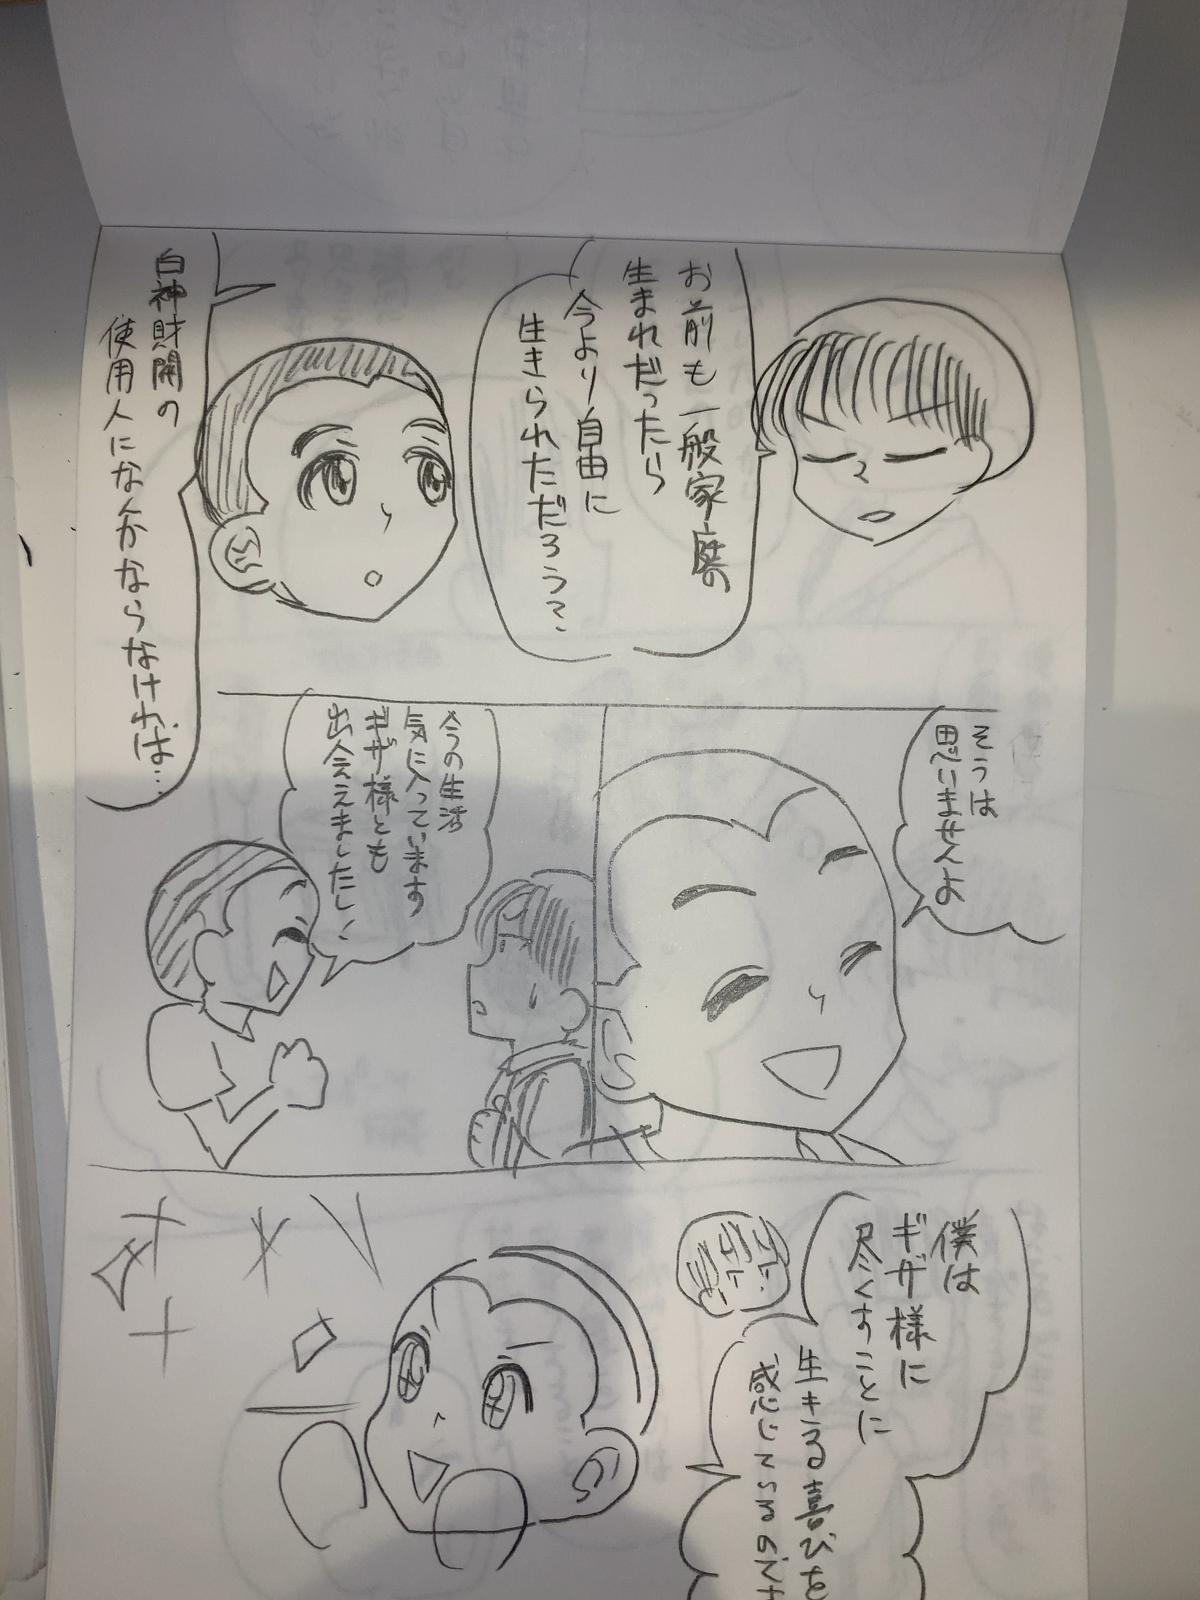 お前も一般家庭の
生まれだったら
今より自由に
生きられただろう?
白神財閥の
使用人になんかならなければ…
そうは
思いませんよ
今の生活
気に入っています
ギザ様とも
出会えましたし!
僕は
ギザ様に
尽くすことに
生きる喜びを
感じてるのです